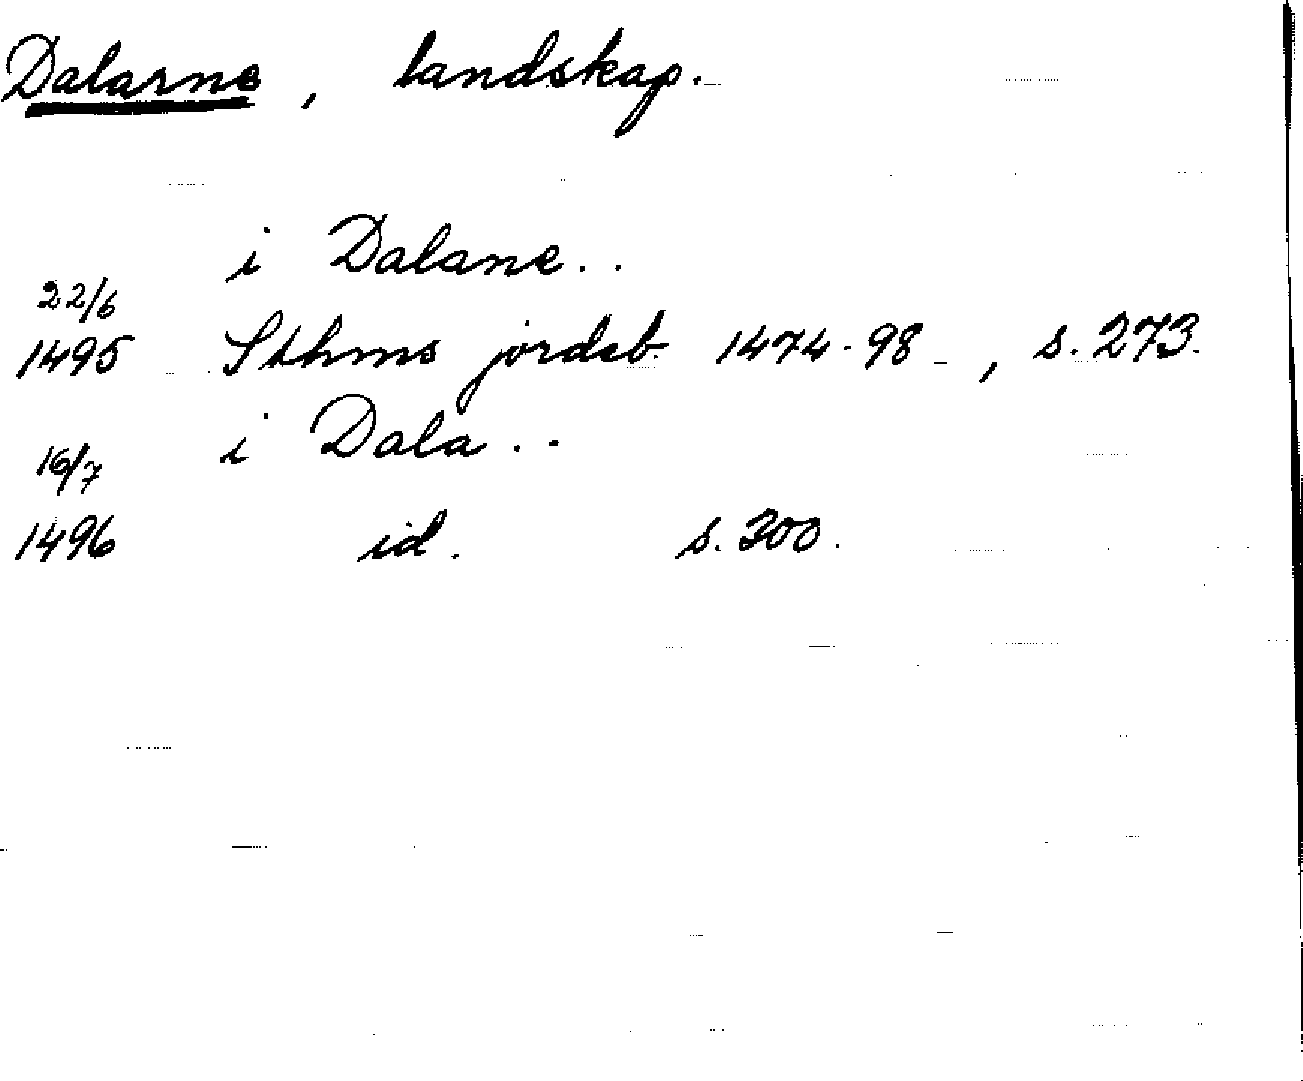 Dalarne, landskap.
i Dalane..
22/6
1495 Sthms jordeb. 1474-98, s. 273.
i Dala..
16/7
1496 id. s. 300.